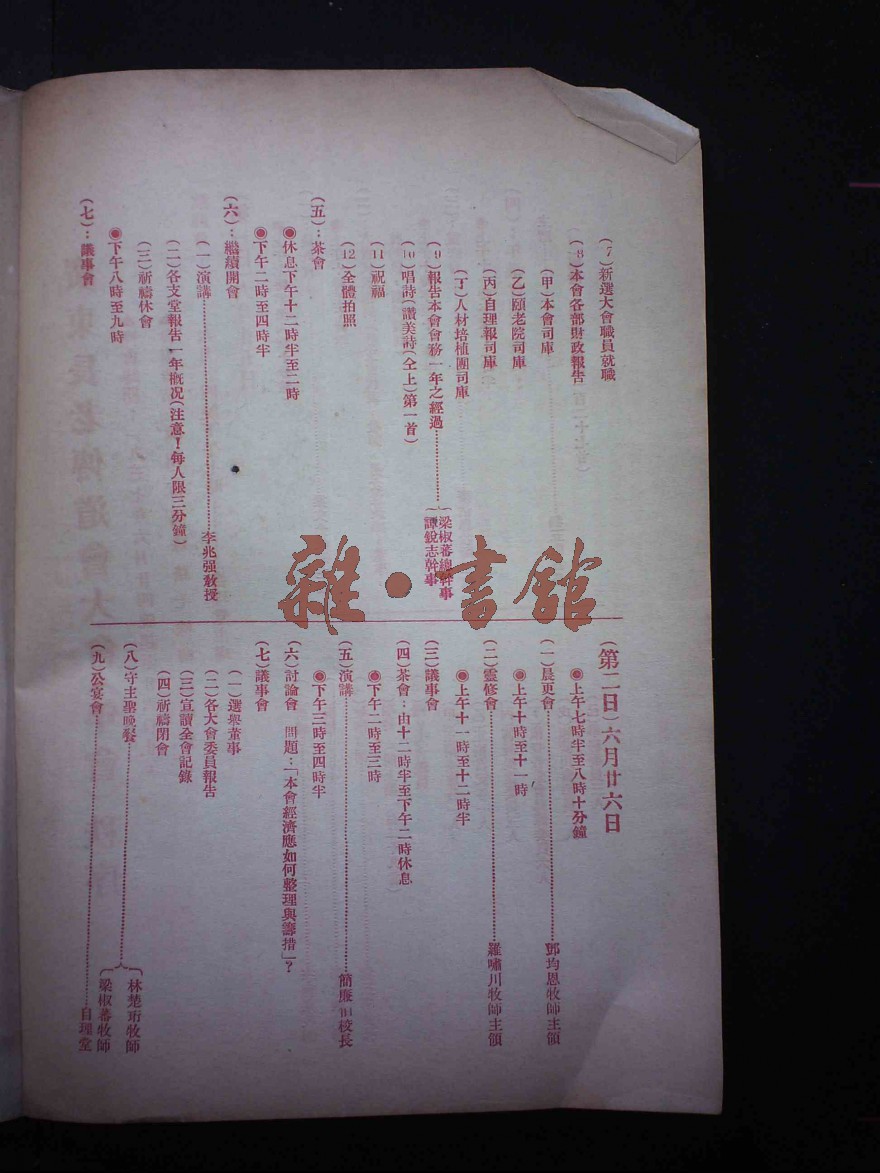 (7)新選大會職員就職
(8)本會各部財政報告
(甲)本會司庫
(乙)頤老院司庫
(丙)自理報司庫
(丁)人材培植團司庫
(9)報告本會會務一年之經過……梁椒蕃總幹事
譚銳志幹事
(10)唱詩(讚美詩(仝上)第一首)
(11)祝福
(12)全體拍照
(五)：茶會
◉休息下午十二時半至二時
◉下午二時至四時半
(六)：繼續開會
(一)演講……李兆强教授
(二)各支堂報告一年概況(注意！每人限三分鐘)
(三)祈禱休會
◉下午八時至九時
(七)：議事會
(第二日)六月廿六日
◉上午七時半至八時十分鐘
(一)晨更會……鄧均恩牧師主領
◉上午十時至十一時
(二)靈修會……羅嘯川牧師主領
◉上午十一時至十二時半
(三)議事會
(四)茶會：由十二時半至下午二時休息
◉下午二時至三時
(五)演講……簡廉伯校長
◉下午三時至四時半
(六)討論會 問題：「本會經濟應如何整理與籌措」？
(七)議事會
(一)選舉董事
(二)各大會委員報告
(三)宣讀全會記錄
(四)祈禱閉會
(八)守主聖晚餐……林楚珩牧師
梁椒蕃牧師
(九)公宴會……自理堂
雜·書館